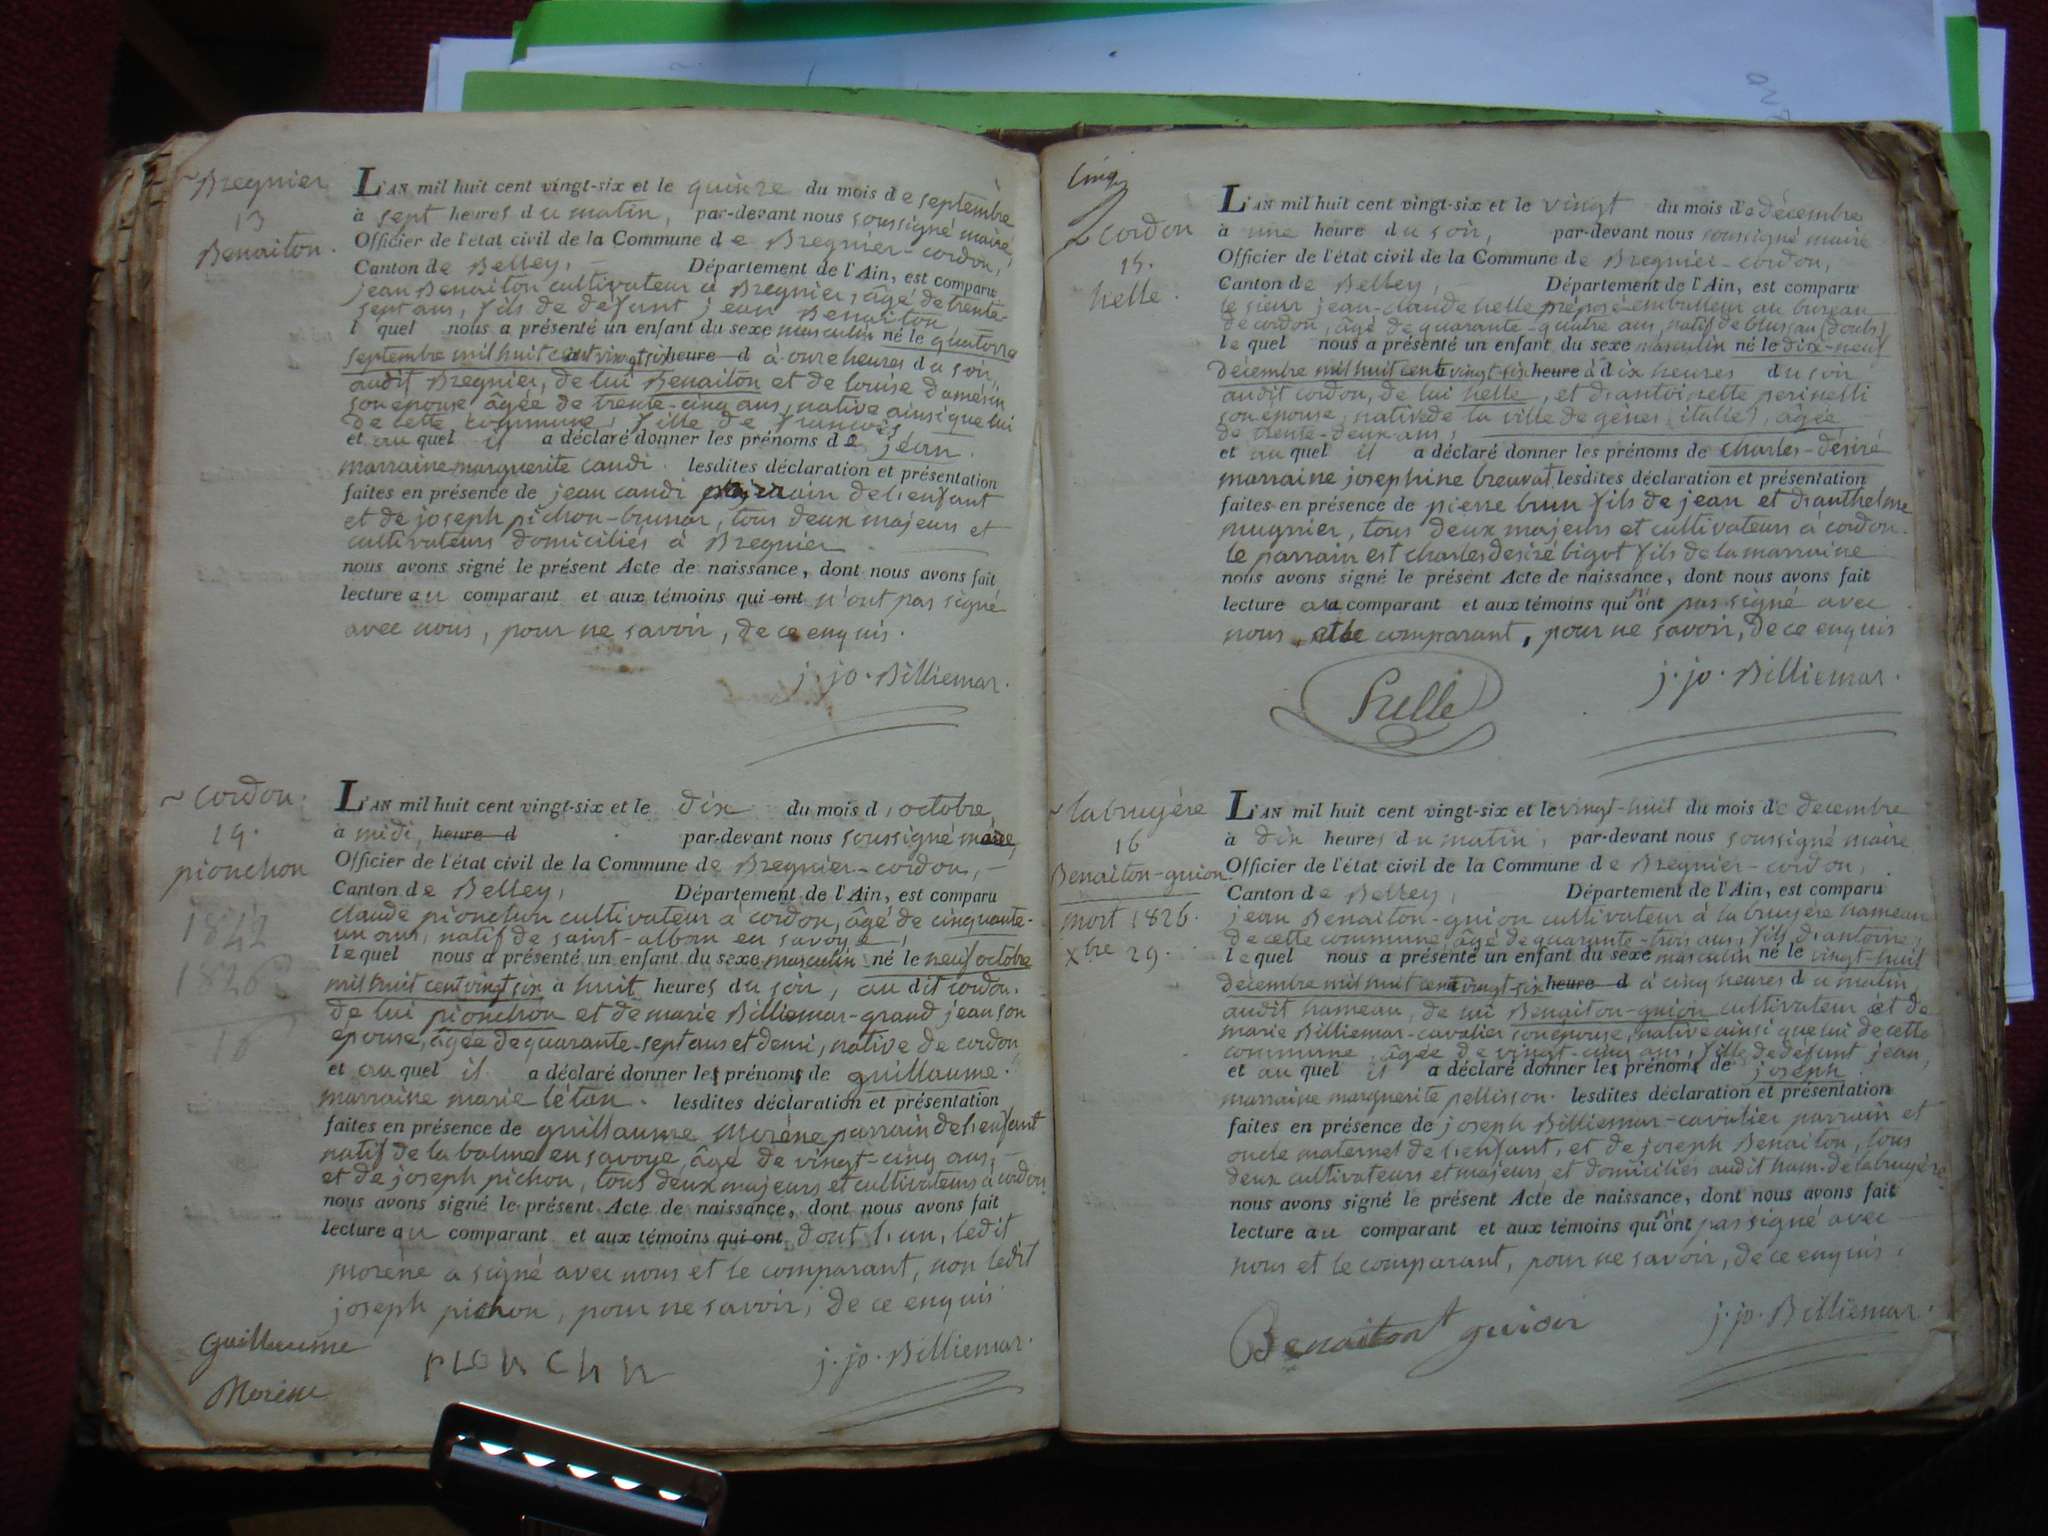 Bregnier
13
Benaiton.
L'AN mil huit cent vingt-six et le quinze du mois de septembre
à sept heures du matin, par-devant nous soussigné maire
Officier de l'état civil de la Commune de Bregnier-cordon,
Canton de Belley, Département de l'Ain, est comparu
jean Benaiton cultivateur à Bregnier, âgé de trente-
sept ans, fils de défunt jean Benaiton
lequel nous a présenté un enfant du sexe masculin né le quatorze
septembre mil huit cent vingt six heure d à onze heures du soir,
audit Bregnier, de lui Benaiton et de louise damésin
son épouse âgée de trente-cinq ans, native ainsi que lui
de cette commune, fille de francois,
et au quel il a déclaré donner les prénoms de jean.
marraine marguerite caudi. lesdites déclaration et présentation
faites en présence de jean caudi parrain de l'enfant
et de joseph pichon-brunar, tous deux majeurs et
cultivateurs domiciliés à Bregnier.
nous avons signé le présent Acte de naissance, dont nous avons fait
lecture au comparant et aux témoins qui ont n'ont pas signé
avec nous, pour ne savoir, de ce enquis.
j. jo. Billiemar.
cordon.
14.
pionchon
1842
1826
16
L'AN mil huit cent vingt-six et le dix du mois d'octobre
à midi, heure d par-devant nous soussigné maire,
Officier de l'état civil de la Commune de Bregnier-cordon,
Canton de Belley, Département de l'Ain, est comparu
claude pionchon cultivateur à cordon, âgé de cinquante-
un ans, natif de saint-alban en savoye,
lequel nous a présenté un enfant du sexe masculin né le neuf octobre
mil huit cent vingt six à huit heures du soir, au dit cordon.
de lui pionchon et de marie Billiemar-grand jean son
épouse, âgée de quarante-sept ans et demi, native de cordon
et au quel il a déclaré donner les prénoms de guillaume.
marraine marie létan. lesdites déclaration et présentation
faites en présence de guillaume Morène parrain de l'enfant
natif de la balme en savoye, âgé de vingt-cinq ans,
et de joseph pichon, tous deux majeurs et cultivateurs à cordon
nous avons signé le présent Acte de naissance, dont nous avons fait
lecture au comparant et aux témoins qui ont, dont l'un, ledit
morène a signé avec nous et le comparant, non ledit
joseph pichon, pour ne savoir, de ce enquis.
guillaume
Morene
j. jo. Billiemar.
Cinq
cordon
15.
helle.
L'AN mil huit cent vingt-six et le vingt du mois de décembre
à une heure du soir, par-devant nous soussigné maire
Officier de l'état civil de la Commune de Bregnier-cordon,
Canton de Belley, Département de l'Ain, est comparu
le sieur jean-claude helle préposé emballeur au bureau
de cordon, âgé de quarante-quatre ans, natif de blussan (doubs)
lequel nous a présenté un enfant du sexe masculin né le dix-neuf
décembre mil huit cent vingt-six heure à dix heures du soir
audit cordon, de lui helle, et d'antoinette perinelli
son épouse, native de la ville de gènes (italie), âgée
de trente-deux ans,
et au quel il a déclaré donner les prénoms de charles-désiré
marraine josephine breuvat, lesdites déclaration et présentation
faites en présence de pierre brun fils de jean et d'anthelme
mugnier, tous deux majeurs et cultivateurs à cordon.
le parrain est charles désiré bigot fils de la marraine
nous avons signé le présent Acte de naissance, dont nous avons fait
lecture au comparant et aux témoins qui n'ont pas signé avec
nous et le comparant, pour ne savoir, de ce enquis
helle
j. jo. Billiemar.
labruyère
16
Benaiton-guion
mort 1826.
xbre 29.
L'AN mil huit cent vingt-six et le vingt-huit du mois de decembre
à dix heures du matin, par-devant nous soussigné maire
Officier de l'état civil de la Commune de Bregnier-cordon,
Canton de Belley, Département de l'Ain, est comparu
jean Benaiton-guion cultivateur à la bruyère hameau
de cette commune, âgé de quarante-trois ans, fils d'antoine,
lequel nous a présenté un enfant du sexe masculin né le vingt-huit
décembre mil huit cent vingt-six heure d à cinq heures du matin
audit hameau, de lui Benaiton-guion cultivateur et de
marie Billiemar-cavalier son épouse, native ainsi que lui de cette
commune, âgée de vingt-cinq ans, fille de défunt jean,
et au quel il a déclaré donner les prénoms de joseph.
marraine marguerite pellisson. lesdites déclaration et présentation
faites en présence de joseph Billiemar-cavalier parrain et
oncle maternel de l'enfant, et de joseph Benaiton, tous
deux cultivateurs et majeurs, et domiciliés audit ham. de labruyère
nous avons signé le présent Acte de naissance, dont nous avons fait
lecture au comparant et aux témoins qui n'ont pas signé avec
nous et le comparant, pour ne savoir, de ce enquis.
Benaiton guion
j. jo. Billiemar.